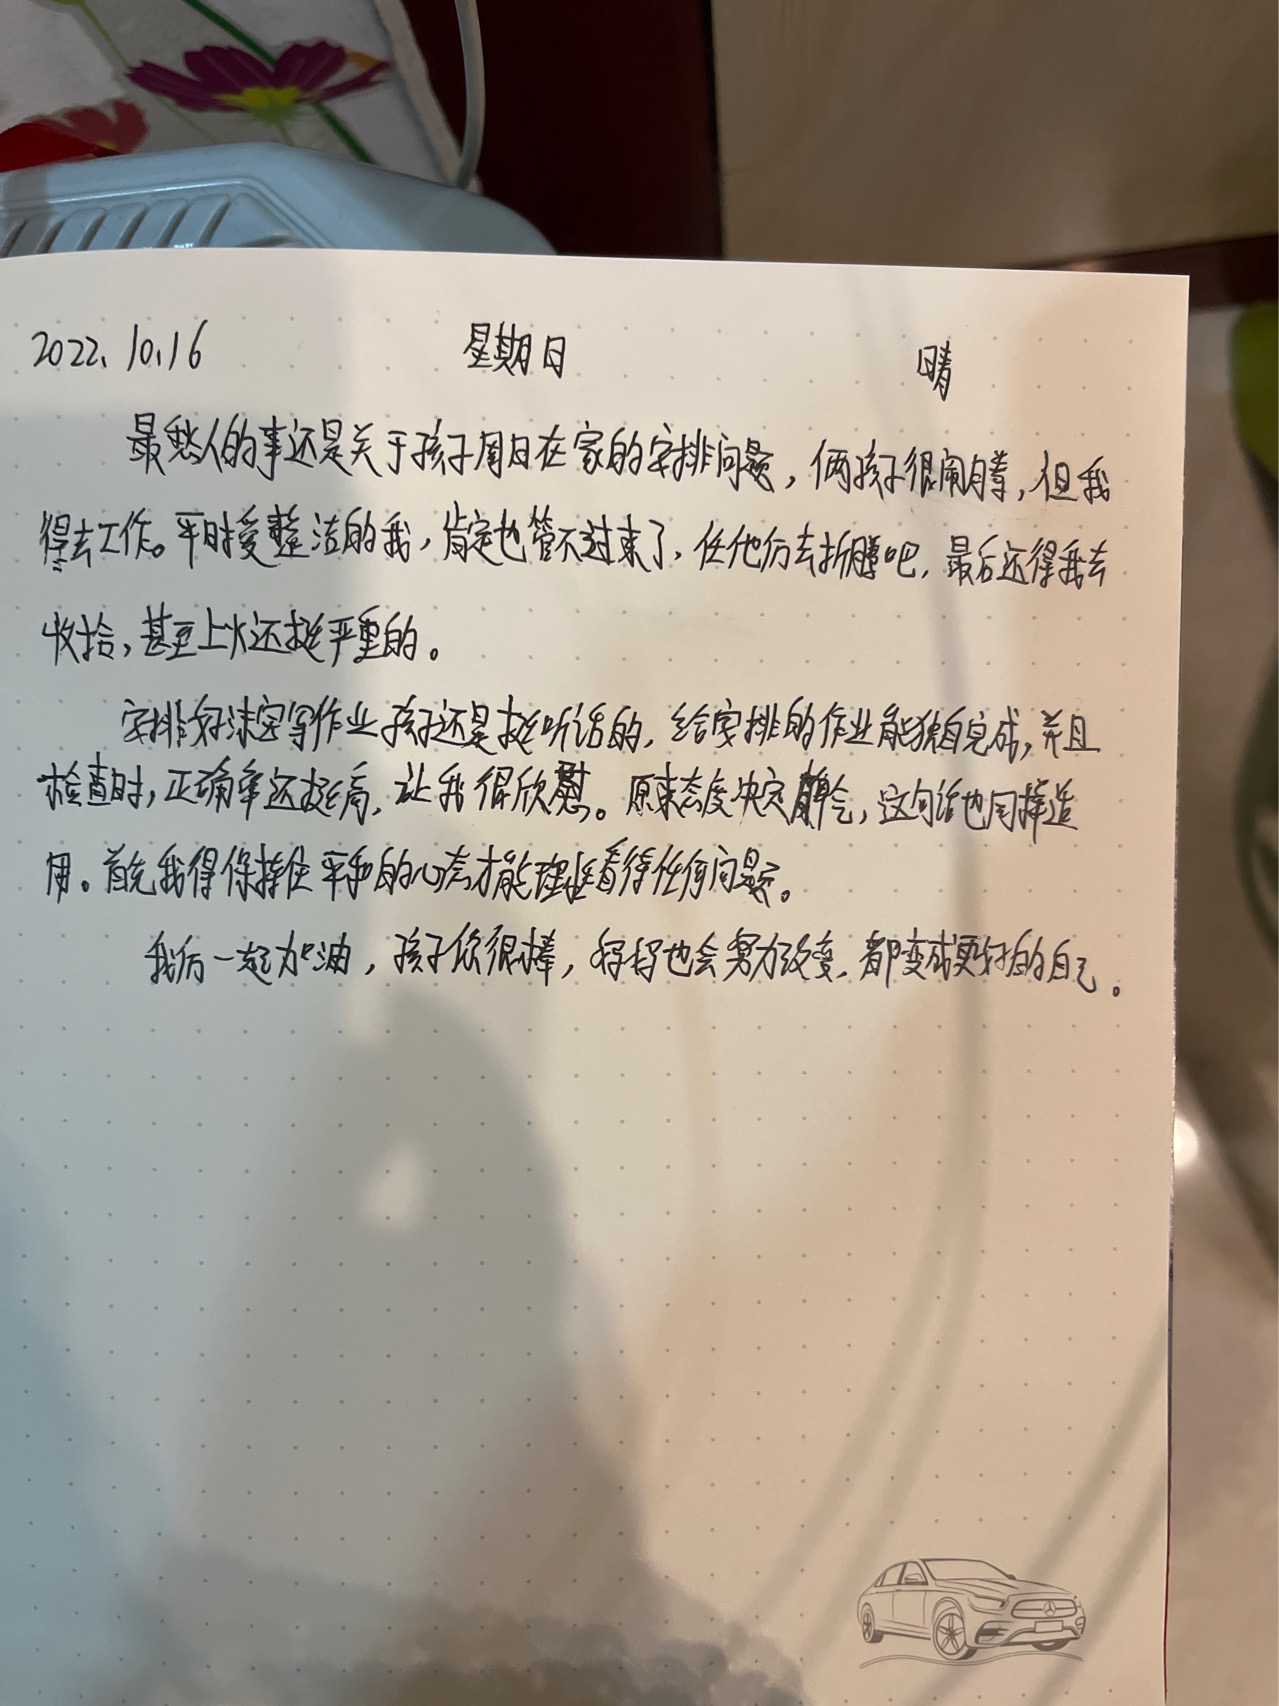 2022.10.16 星期日 晴
最愁人的事还是关于孩子周日在家的安排问题，俩孩子很闹腾，但我
得去工作。平时爱整洁的我，肯定也管不过来了，任他们去折腾吧，最后还得我去
收拾，甚至上火还挺严重的。
安排好课室写作业孩子还是挺听话的，给安排的作业能独自完成，并且
检查时，正确率还挺高，让我很欣慰。原来态度决定一切，这句话也同样适
用。首先我得保持住平和的心态才能理性看待任何问题。
我们一起加油，孩子你很棒，妈妈也会努力改变，都变成更好的自己。